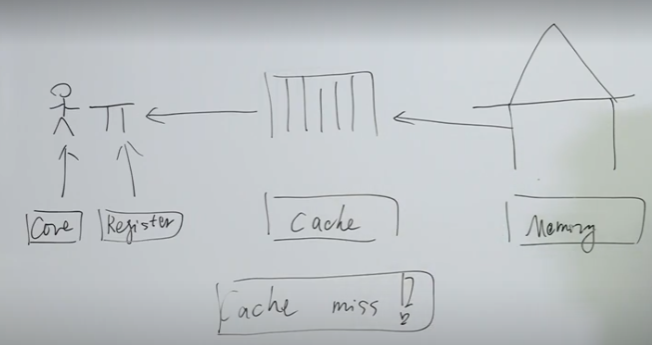 Core
Register
Cache
Memory
Cache miss